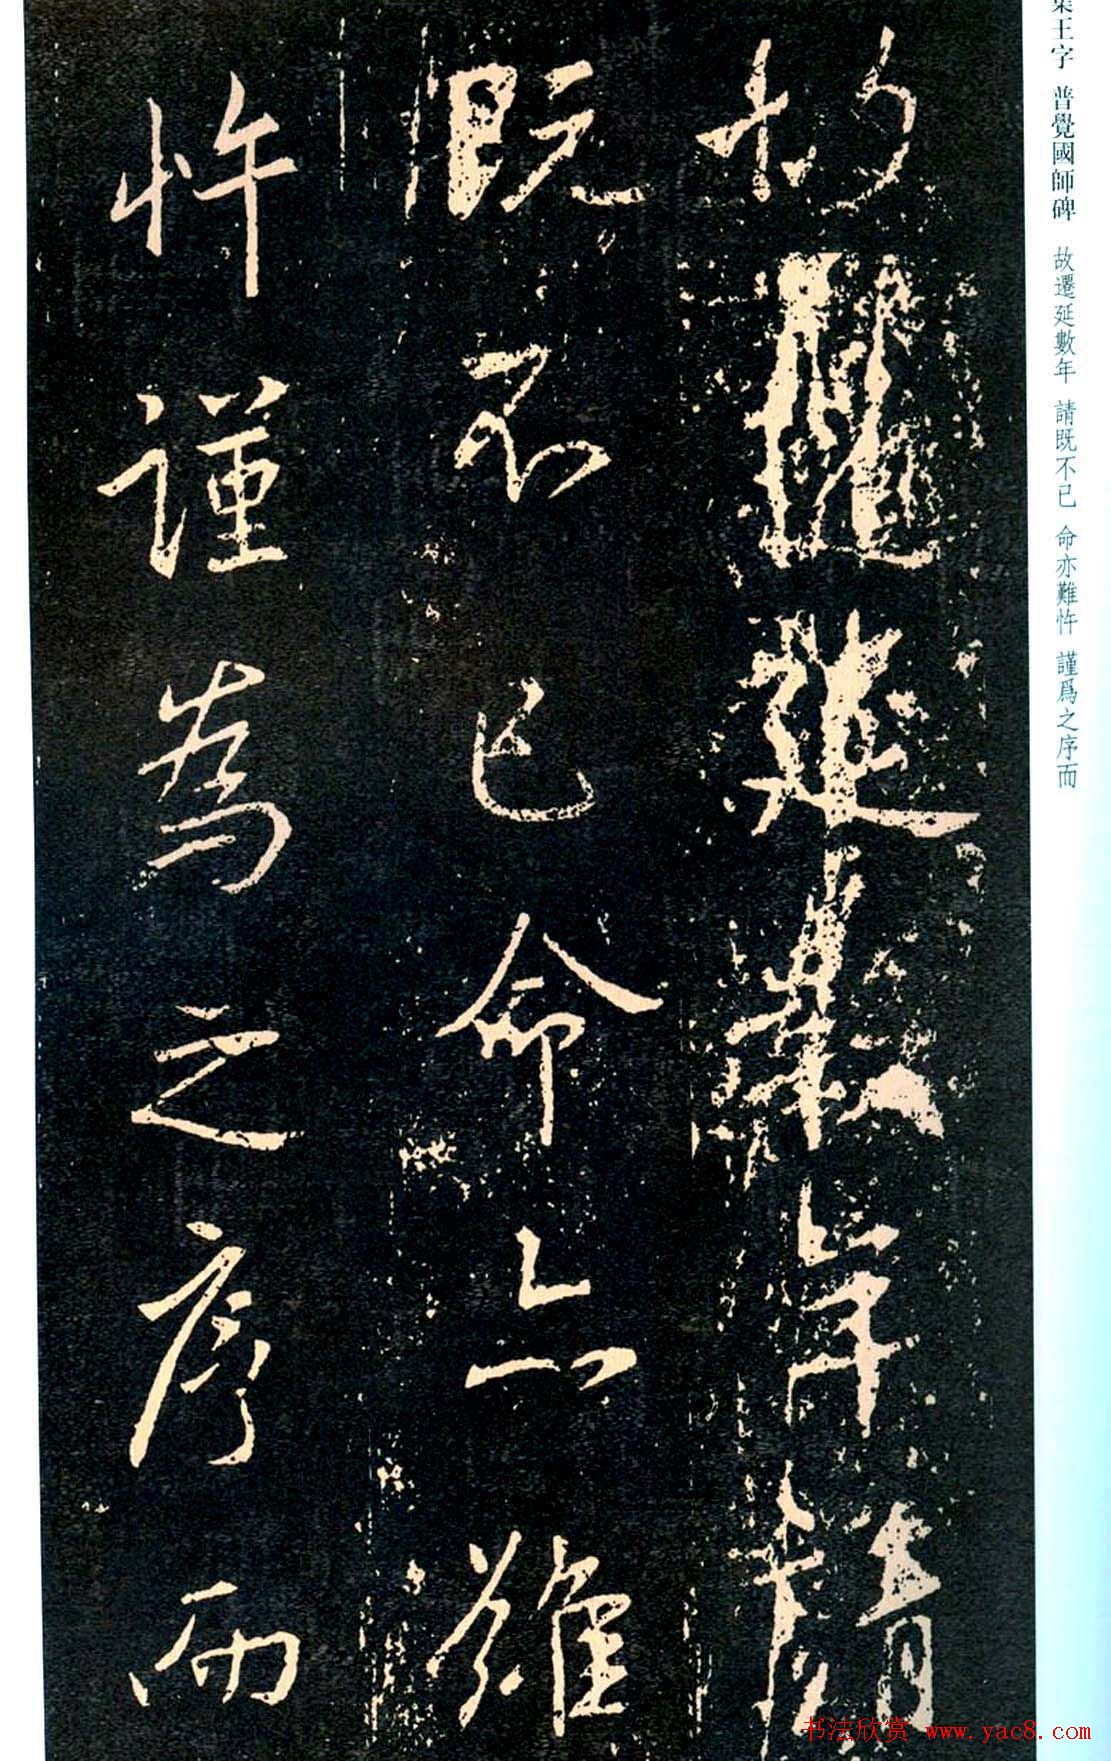 集王字 普覺國師碑 故遷延數年 請既不已 命亦難忤 謹爲之序而
故遷延數年請
既不已命亦難
忤謹為之序而
书法欣赏 www.yac8.com